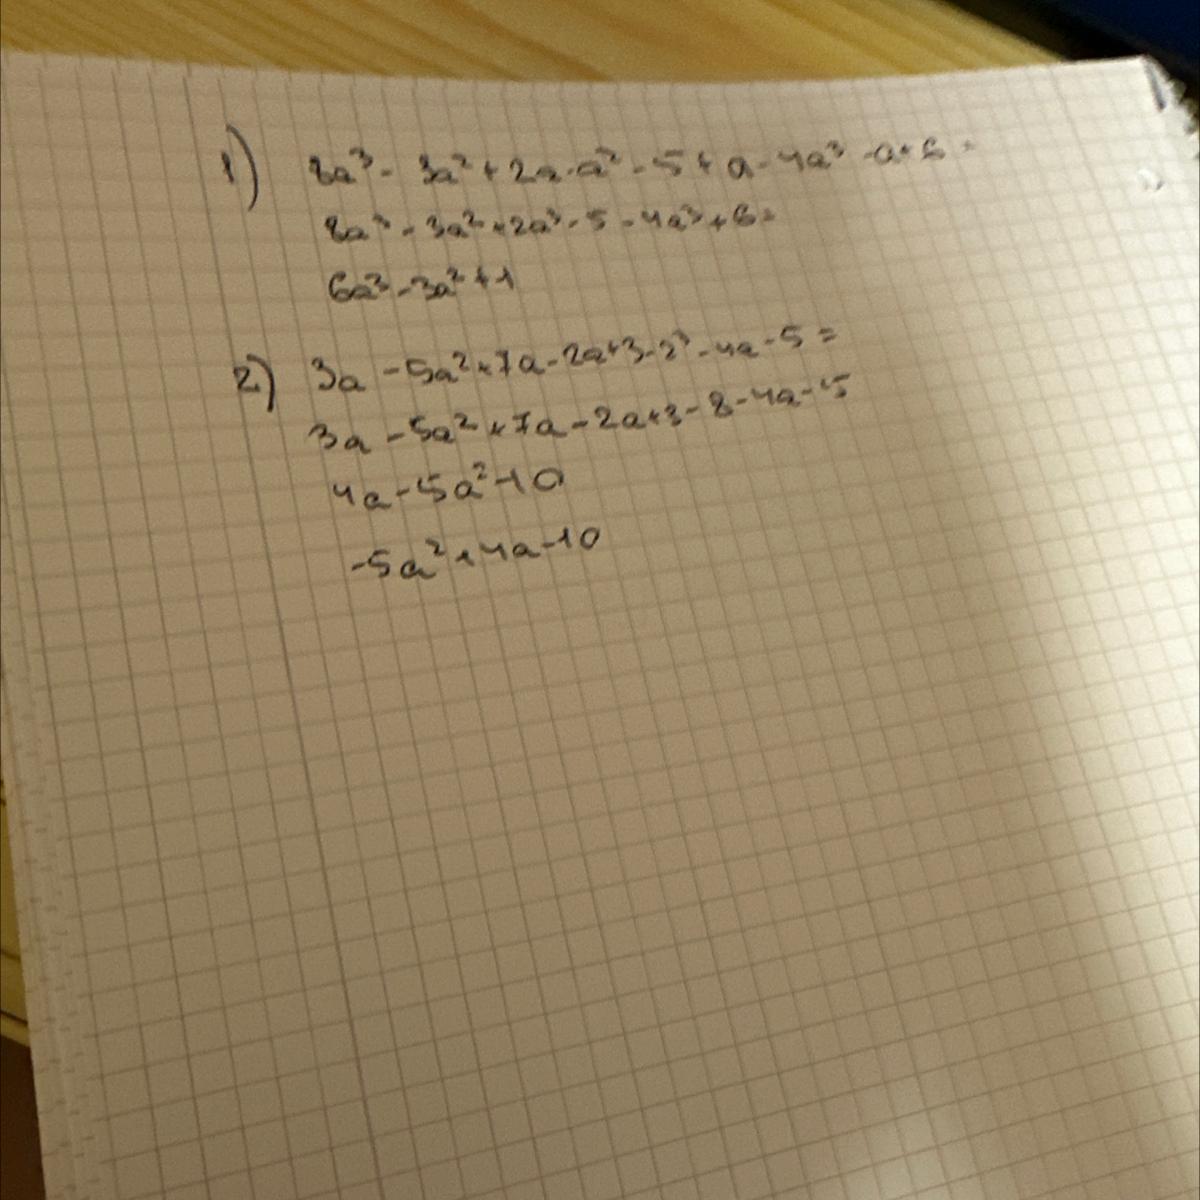 1) 8a³ - 3a² + 2a·a² - 5 + a - 4a³ - a + 6 =
8a³ - 3a² + 2a³ - 5 - 4a³ + 6 =
6a³ - 3a² + 1
2) 3a - 5a² + 7a - 2a + 3 - 2³ - 4a - 5 =
3a - 5a² + 7a - 2a + 3 - 8 - 4a - 5
4a - 5a² - 10
-5a² + 4a - 10